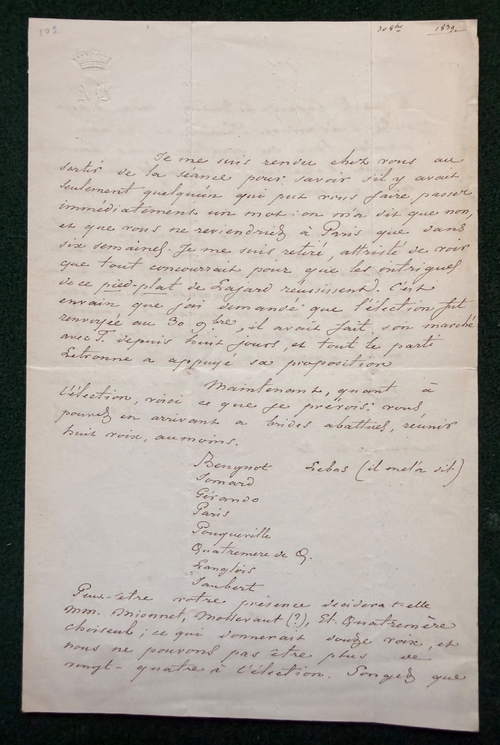 102
8bre 1839
Je me suis rendu chez vous au
sortir de la séance pour savoir s'il y avait
seulement quelqu'un qui put vous faire passer
immédiatement un mot : on m'a dit que non,
et que vous ne reviendriez à Paris que dans
six semaines. Je me suis retiré, attristé de voir
que tout concourrait pour que les intrigues
de ce pied-plat de Lajard réussissent. C'est
envain que j'ai demandé que l'élection fut
renvoyée au 30 9bre, il avait fait son marché
avec T. depuis huit jours, et tout le parti
Letronne a appuyé sa proposition
Maintenant, quant à
l'élection, voici ce que je prévois : vous
pouvez en arrivant a brides abattues, réunir
huit voix, au moins.
Beugnot Lebas (il me l'a dit)
Jomard
Gérando
Paris
Pouqueville
Quatremere de Q.
Langlois
Jaubert
Peut-être votre présence decidera t-elle
MM. Mionnet, Mollevaut (?), Et. Quatremère
choiseul ; ce qui donnerait douze voix, et
nous ne pouvons pas être plus de
vingt-quatre à l'élection. Songez que